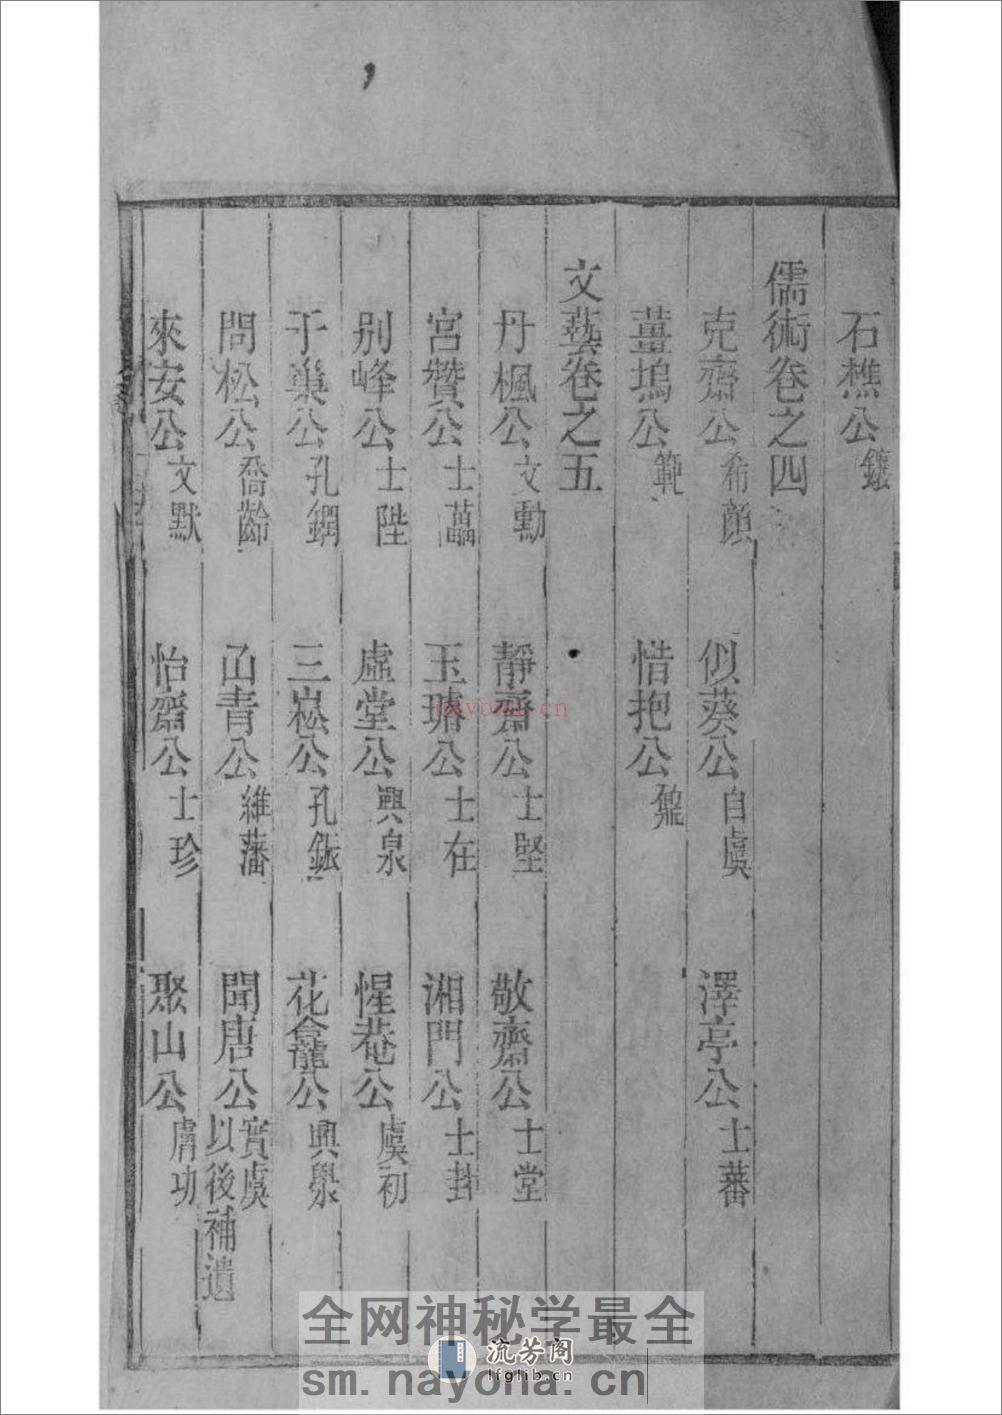 石樵公鑲
儒術卷之四
克齋公希顔 似葵公自虞 澤亭公士蕃
薑塢公範 惜抱公鼐
文藝卷之五
丹楓公文勳 靜齋公士堅 敬齋公士堂
宮贊公士藟 玉璿公士在 湘門公士封
别峰公士陛 虛堂公興泉 惺菴公虞初
于巢公孔鐗 三崧公孔鋠 花龕公興㵗
問松公喬齡 函青公維藩 聞唐公實虞以後補遺
來安公文默 怡齋公士珍 聚山公膚功
nayona.cn
全网神秘学最全
流芳阁
lfglib.cn
sm.nayona.cn